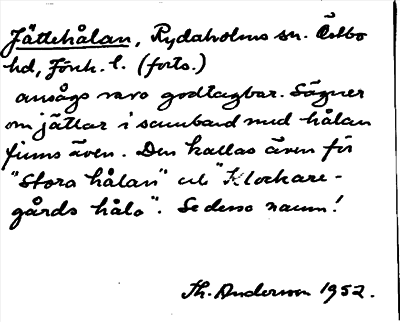 Jättehålan, Rydaholms sn. Östbo
hd, Jönk. l. (forts.)
ansågs vara godtagbar. Sägner
om jättar i samband med hålan
finns även. Den kallas även för
"Stora hålan" och "Klockare-
gårds håla". Se dessa namn!
Th. Anderson 1952.